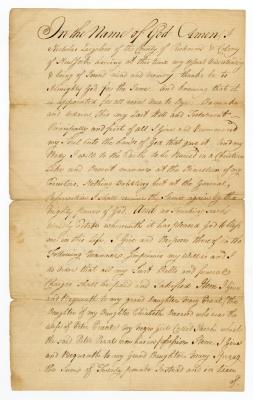 In the Name of God Amen, I
Nicholas Larzelere of the County of Richmond & Colony
of New York being at this time my usual
& being of Sound mind and memory thanks be to
Almighty God for the Same. And knowing that it
is appointed for all men once to Dye. Do make
and ordain this my Last Will and Testament
Principally and first of all I Give and Recommend
my Soul into the hands of God that gave it And my
Body I will to the Earth to be Buried in a Christian
Like and Decent manner at the Discretion of my
Executors. Nothing doubting but at the General
Resurrection I shall receive the Same again by the
mighty Power of God. And as touching such
worldly Estate wherewith it has pleased God to bless
me in this Life. I Give and Dispose thereof in the
Following manner. Imprimis my will is and I
do order that all my Just Debts and funeral
Charges shall be paid and Satisfied Item I Give
and Bequeath to my grand daughter Mary Praal, the
Daughter of my Daughter Elizabeth Deceased who was the
wife of Peter Praal my negro girl which
the said Peter Praal now has in possession Item. I Give
and Bequeath to my grand Daughter Mary Praal
the Sume of Twenty pounds Instead and in Leiu
of